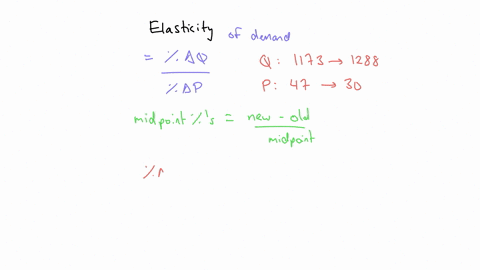 Elasticity of demand
= %ΔQ / %ΔP
Q: 1173 → 1288
P: 47 → 30
midpoint %'s = new - old / midpoint
%